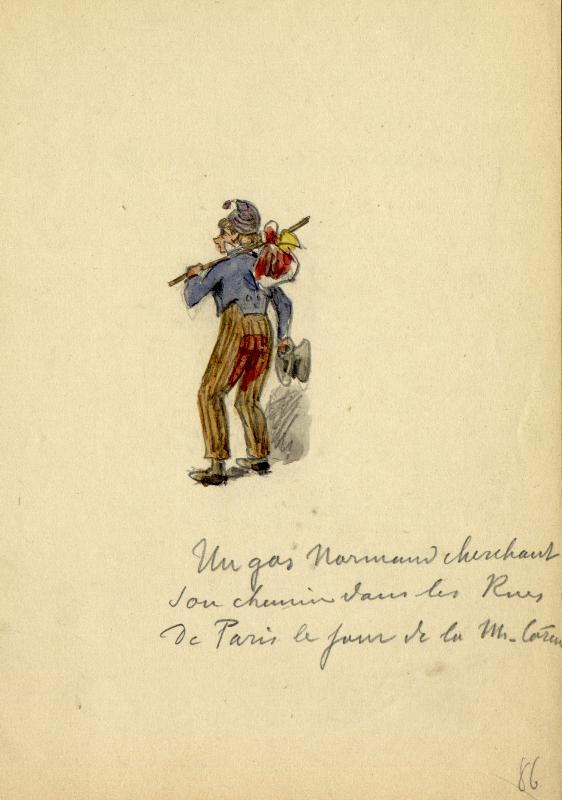 Un gas Normand cherchant
son chemin dans les Rues
De Paris le jour de la Mi-Carem
86